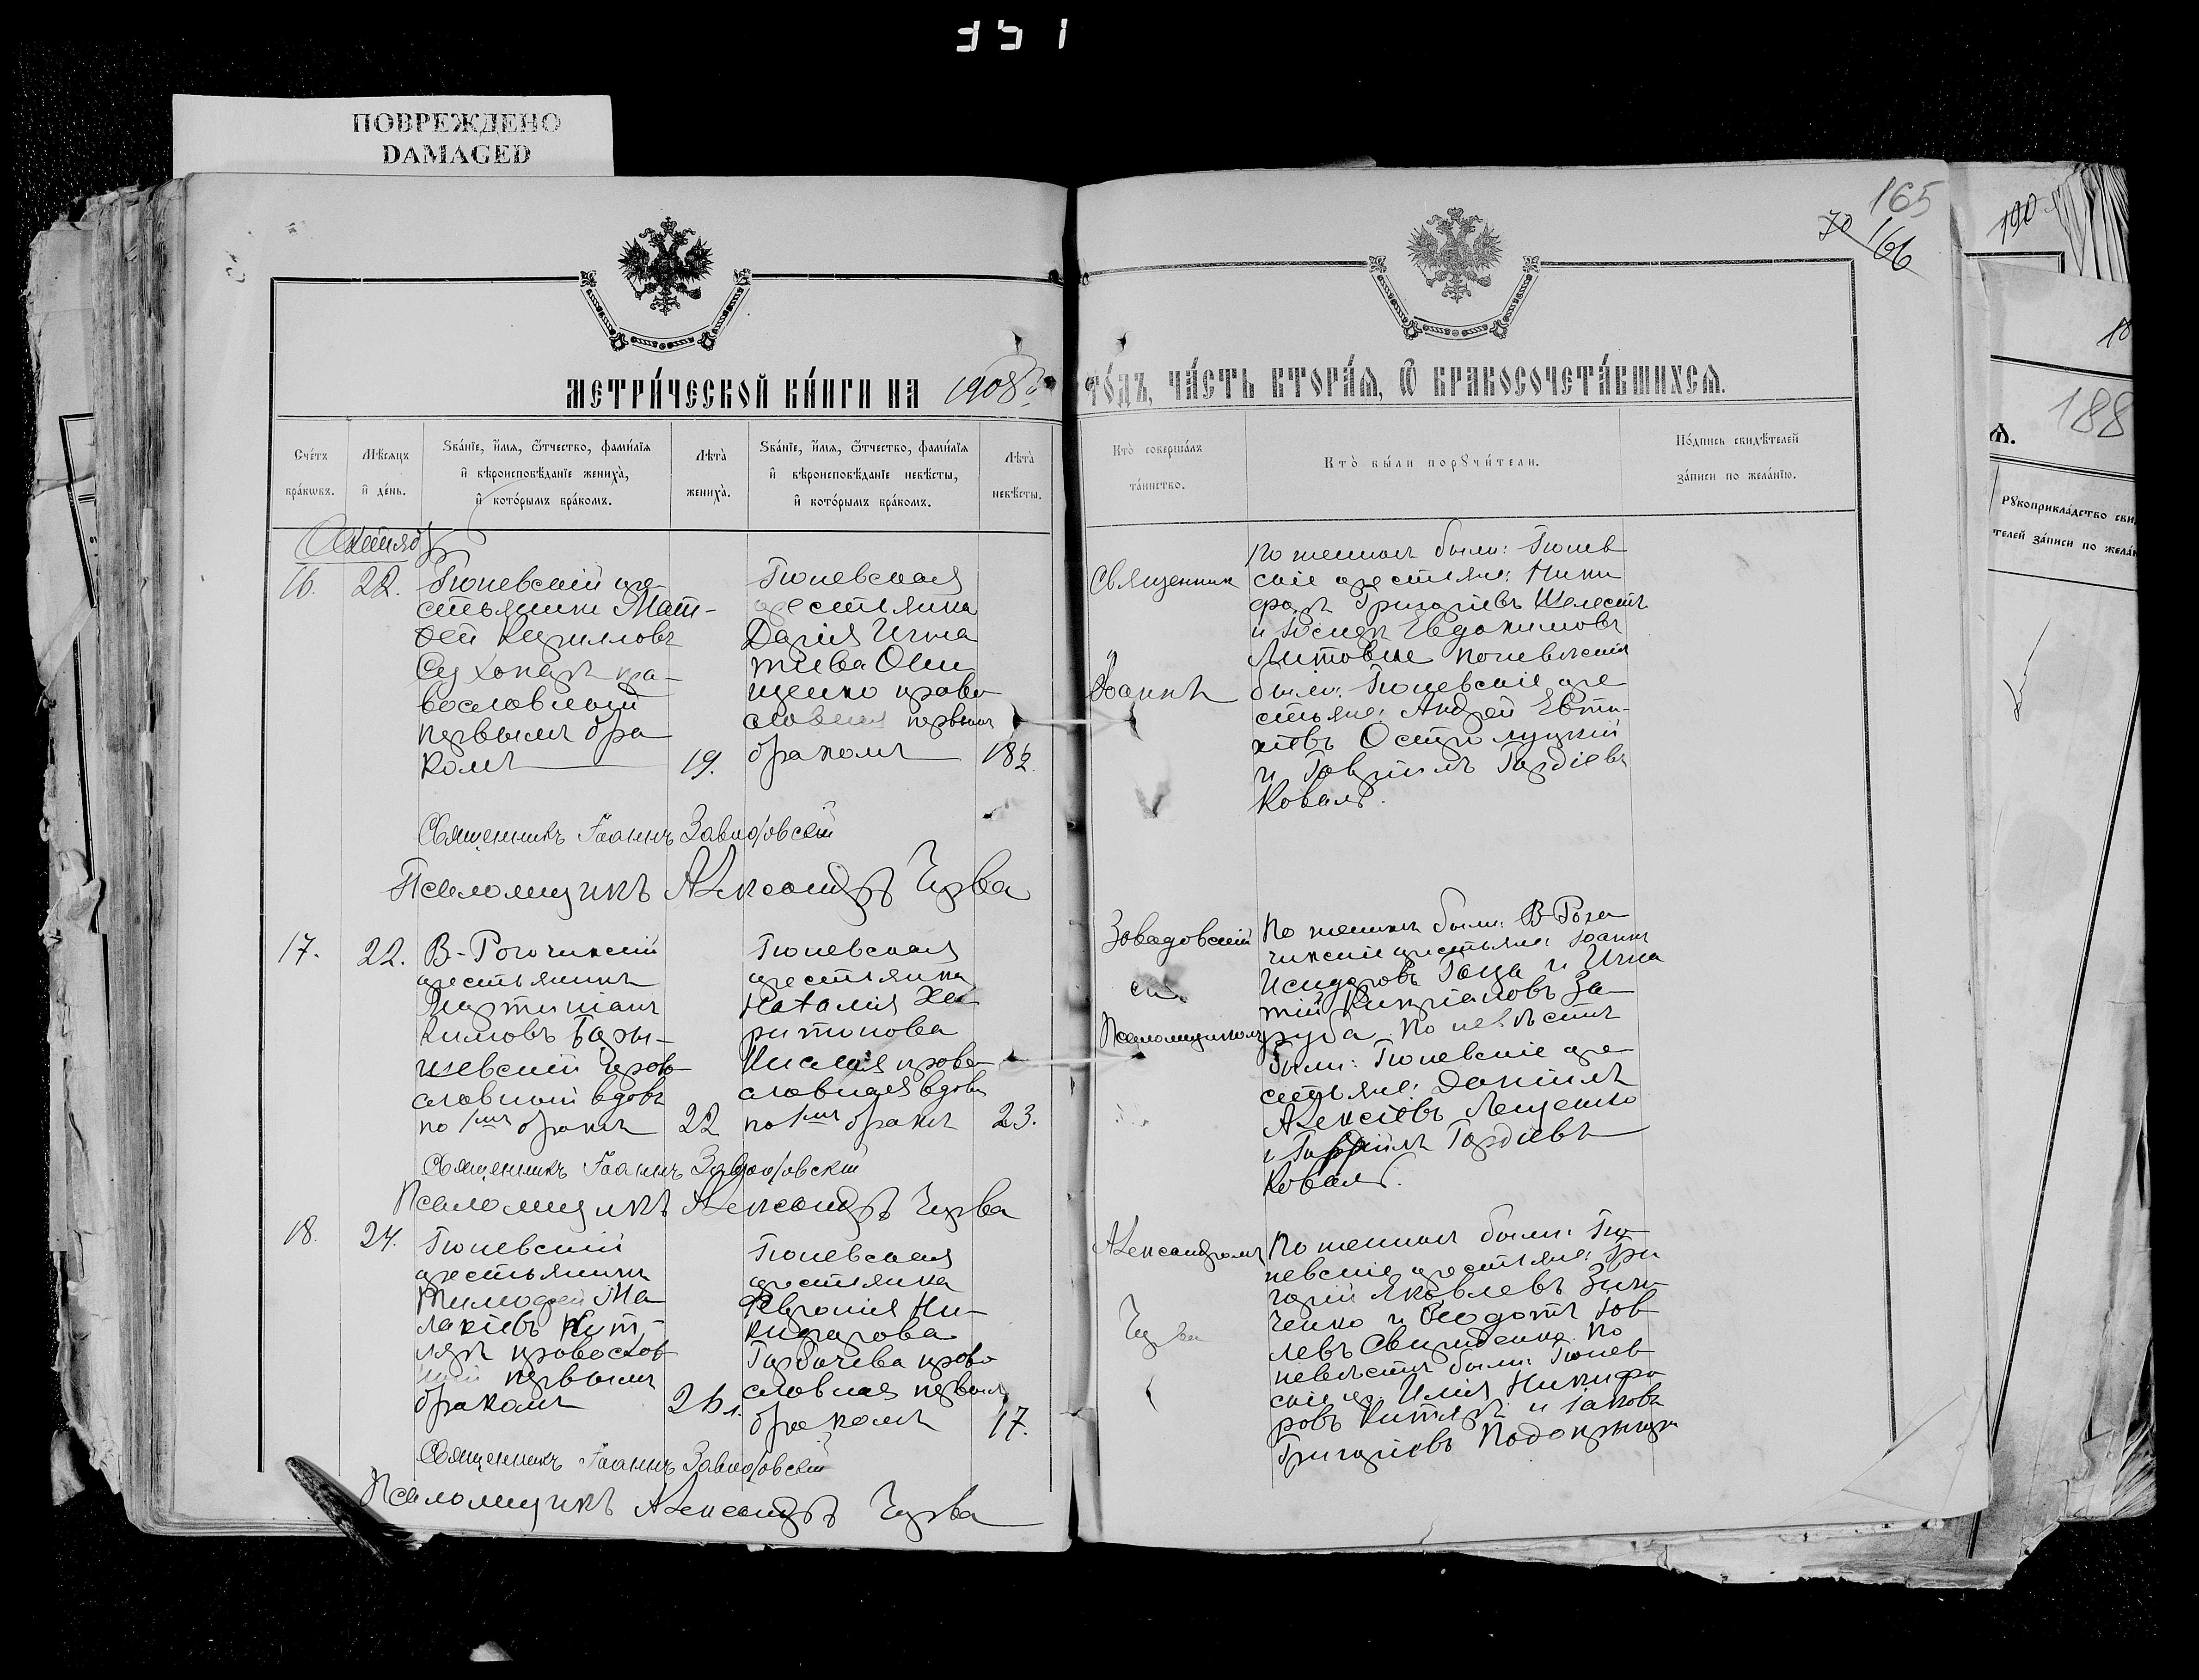 351
ПОВРЕЖДЕНО
DAMAGED
165
70
166
190
188
МЕТРИ́ЧЕСКОЙ КНИ́ГИ НА 1908 г.
ГО́ДЪ, ЧА́СТЬ ВТОРА́Ѧ, Ѿ БРАКОСОЧЕТА́ВШИХСѦ.
Сче́тъ бра́кѡвъ.
Мѣ́сяцъ и҆ де́нь.
Ѕва́нїе, и҆́мѧ, ѻ҆́тчество, фами́лїѧ
и҆ вѣроисповѣ́данїе жениха̀,
и҆ кото́рымъ бра́комъ.
Лѣта̀ жениха̀.
Ѕва́нїе, и҆́мѧ, ѻ҆́тчество, фами́лїѧ
и҆ вѣроисповѣ́данїе невѣ́сты,
и҆ кото́рымъ бра́комъ.
Лѣта̀ невѣ́сты.
Кто̀ соверша́лъ
та́инство.
Кто̀ бы́ли порꙋчи́тели.
По́дпись свидѣ́телей
за́писи по жела́нїю.
Октябрь
16.
22.
Тюневскій кре-
стьянинъ Мат-
ѳей Кирилловъ
Сухопаръ пра-
вославный
первымъ бра
комъ
19.
Тюневская
крестьянка
Дарія Игна
тіева Они
щенко право
славная первымъ
бракомъ
182
Священникъ
Іоаннъ
По женихѣ были: Тюнев
скіе крестьяне: Ники
форъ Григоріевъ Шелестъ
и Іосифъ Евдокимовъ
Литовче по невѣстѣ
были: Тюневскіе кре
стьяне: Андрей Евти-
хіевъ Остролуцкій
и Гавріилъ Гордіевъ
Коваль.
Священникъ Іоаннъ Завадовскій
Псаломщикъ Александръ Чурва
17.
22.
В-Рогачикскій
крестьянинъ
Мартиніанъ
Кимовъ Бары-
шевскій право
славный вдовъ
по 1мъ бракѣ
22
Тюневская
крестьянка
Наталія Ха
ритонова
Кислая право
славная вдова
по 1мъ бракѣ
23.
Завадовскій
съ
Псаломщикомъ
По женихѣ были: В-Рога
чикскіе крестьяне: Іоаннъ
Исидоровъ Гоца и Игна
тій Кипріановъ За
руба. По невѣстѣ
были: Тюневскіе кре
стьяне: Даніилъ
Алексіевъ Лещенко
и Гавріилъ Гордіевъ
Коваль.
Священникъ Іоаннъ Завадовскій
Псаломщикъ Александръ Чурва
18.
24.
Тюневскій
крестьянинъ
Тимофей Ма
лахіевъ Кит-
ляръ православ
ный первымъ
бракомъ
Тюневская
крестьянка
Февронія Ни-
кифорова
Горбачева право
славная первымъ
бракомъ
17.
Александромъ
Чурва
По женихѣ были: Тю-
невскіе крестьяне: Гри
горій Яковлевъ Зин-
ченко и Ѳеодотъ Іов
левъ Свириденко. По
невѣстѣ были: Тюнев
скіе кр. Илія Никифо
ровъ Китляръ и Іаковъ
Григоріевъ Подопригора
Священникъ Іоаннъ Завадовскій
Псаломщикъ Александръ Чурва
Рꙋкоприкла́дство сви
телей за́писи по жела